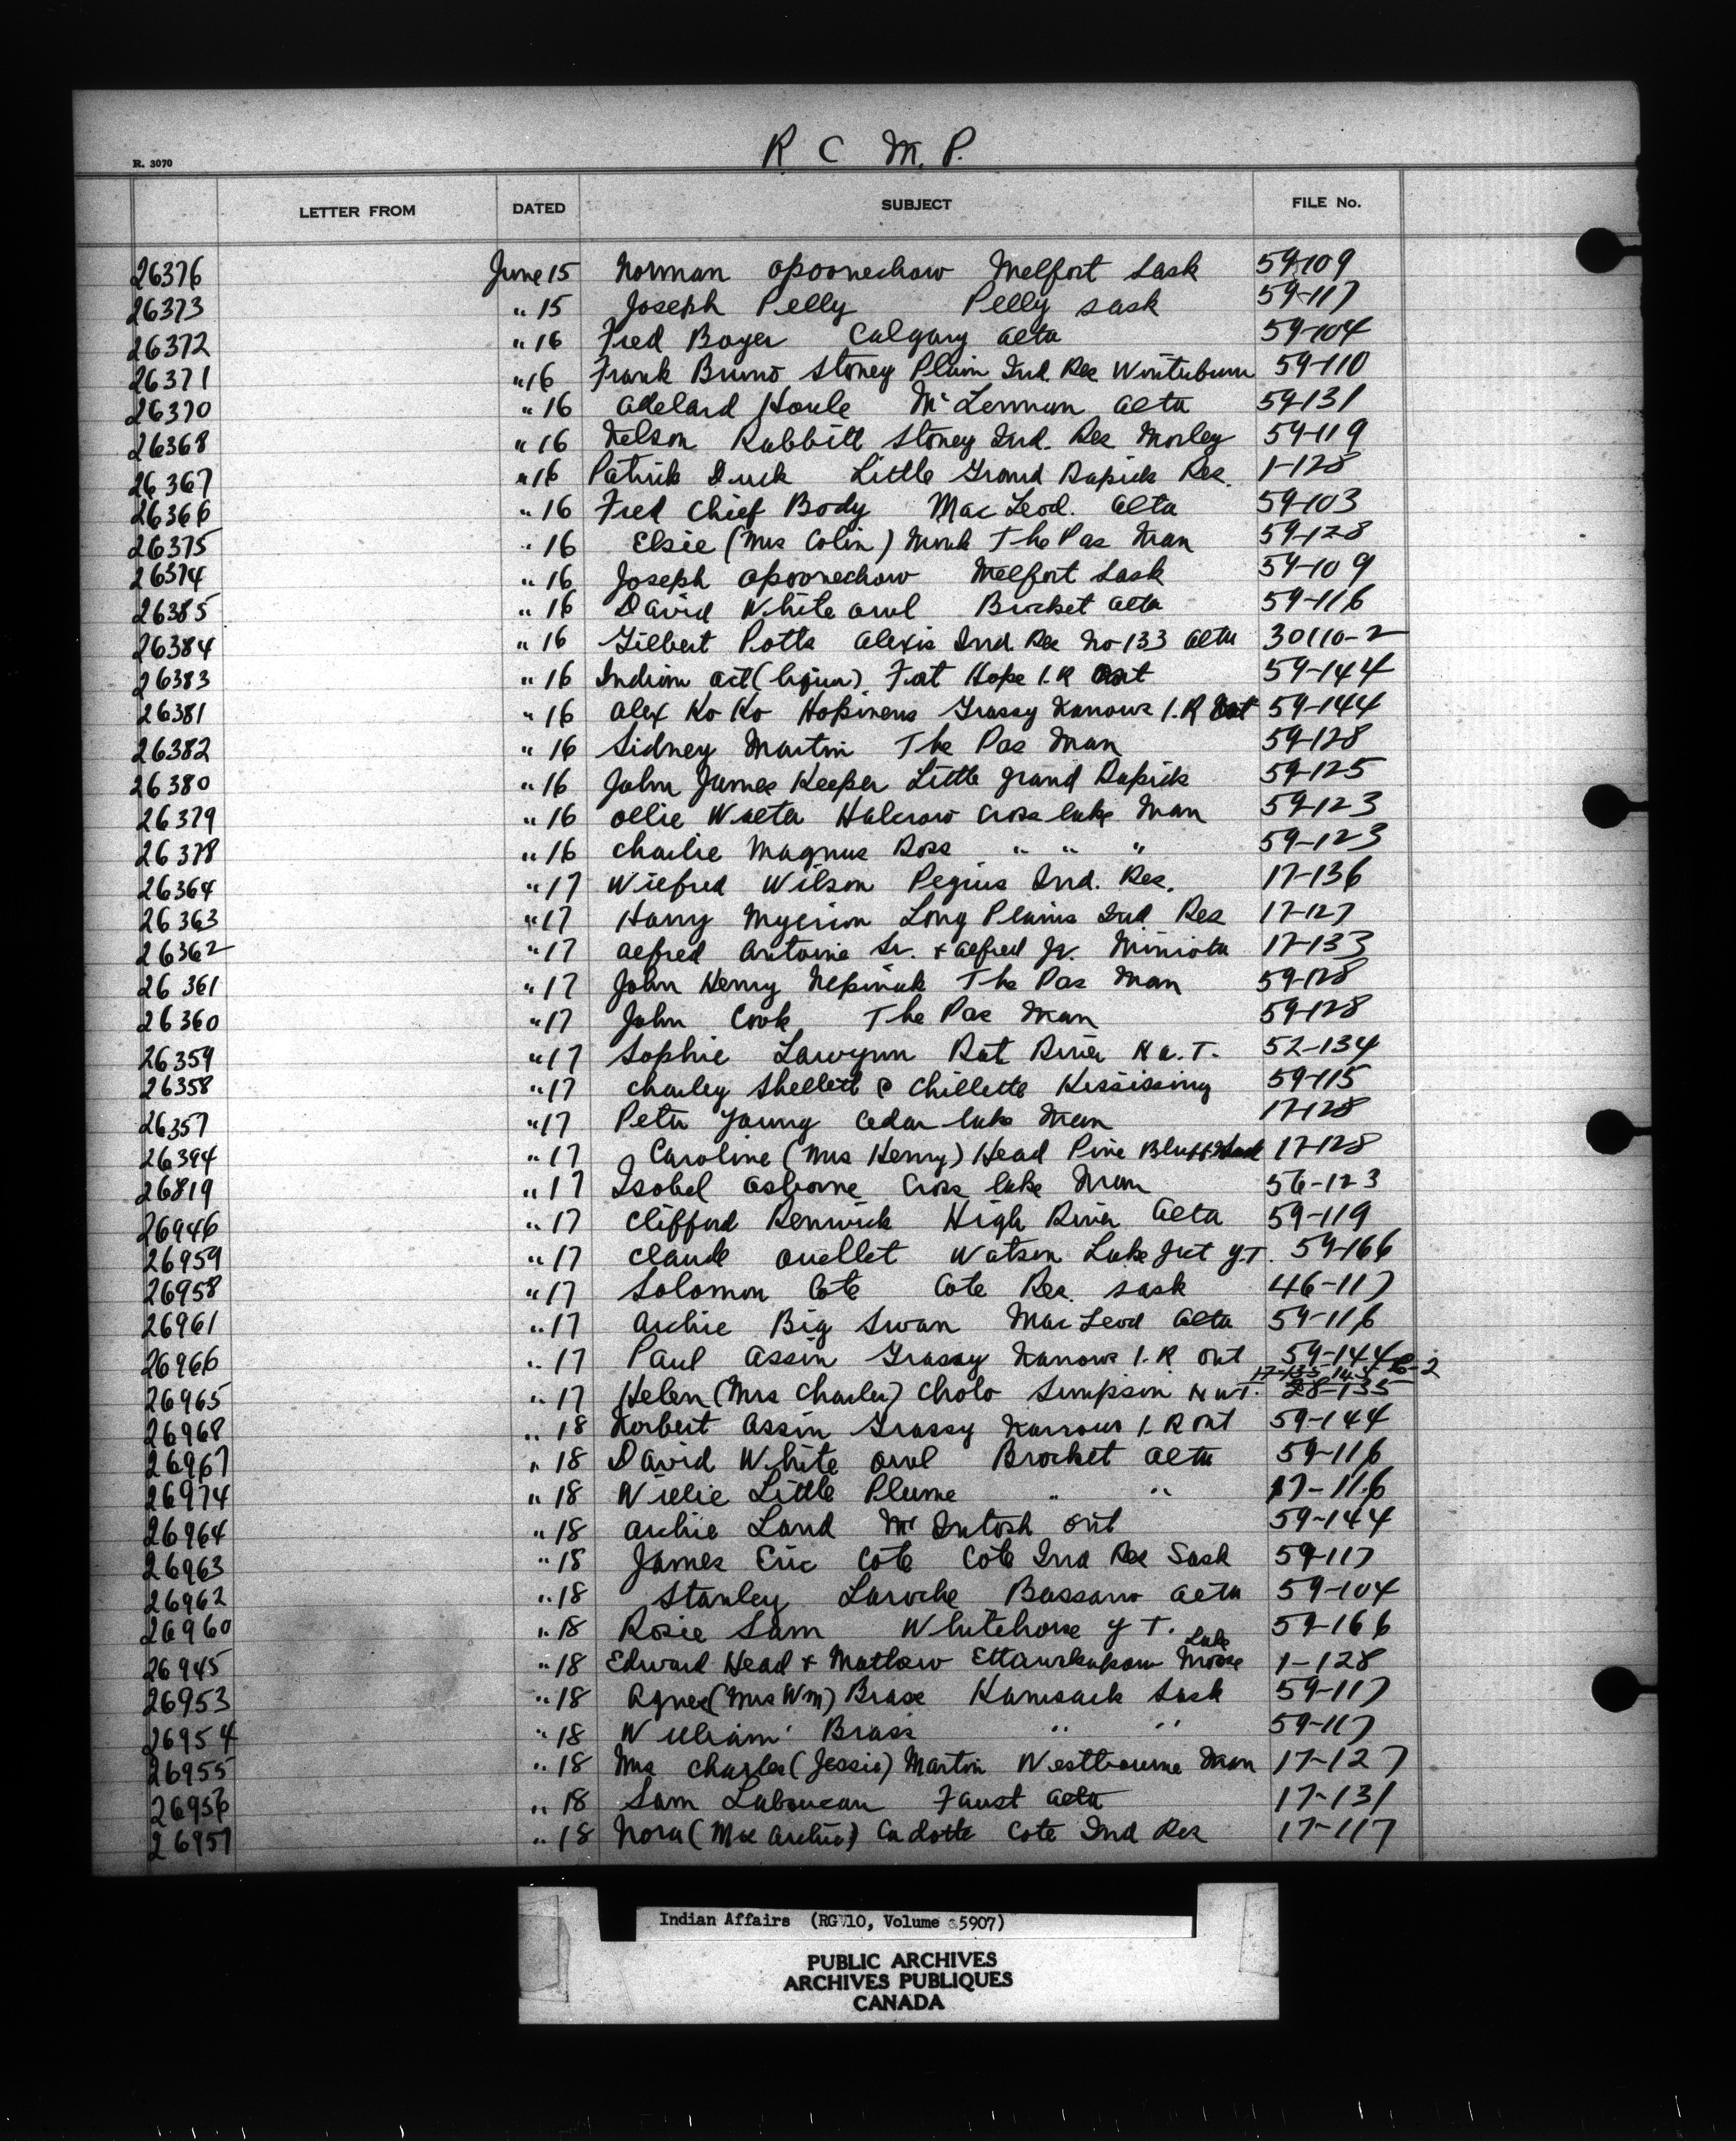 R C M. P.
R. 3070
LETTER FROM DATED SUBJECT FILE No.
26376 June 15 Norman Opoonechaw Melfort Sask 59-109
26373 " 15 Joseph Pelly Pelly Sask 59-117
26372 " 16 Fred Boyer Calgary Alta 59-104
26371 " 16 Frank Bruno Stoney Plain Ind. Res Winterburn 59-110
26370 " 16 Adelard Houle McLennan Alta 59-131
26368 " 16 Nelson Rabbitt Stoney Ind. Res Morley 59-119
26367 " 16 Patrick Duck Little Grand Rapids Res. 1-128
26366 " 16 Fred Chief Body MacLeod. Alta 59-103
26375 " 16 Elsie (Mrs Colin) Monk The Pas Man 59-128
26374 " 16 Joseph Opoonechaw Melfort Sask 59-109
26385 " 16 David White Owl Brocket Alta 59-116
26384 " 16 Gilbert Potts Alexis Ind Res No-133 Alta 30110-2
26383 " 16 Indian Act (liquor) Fort Hope I.R Ont 59-144
26381 " 16 Alex Ko Ko Hopinens Grassy Narrows I.R Ont 59-144
26382 " 16 Sidney Martin The Pas Man 59-128
26380 " 16 John James Keeper Little Grand Rapids 59-125
26379 " 16 Ollie Walter Halcrow Cross Lake Man 59-123
26378 " 16 Charlie Magnus Ross " " " 59-123
26364 " 17 Wilfred Wilson Peguis Ind. Res. 17-136
26363 " 17 Harry Myerion Long Plains Ind Res 17-127
26362 " 17 Alfred Antoine Sr. & Alfred Jr. Miniota 17-133
26361 " 17 John Henry Nepinak The Pas Man 59-128
26360 " 17 John Cook The Pas Man 59-128
26359 " 17 Sophie Rat River N.W.T. 52-134
26358 " 17 Charley Shellett @ Chillette Kississing 59-115
26357 " 17 Peter Young Cedar Lake Man 17-128
26394 " 17 Caroline (Mrs Henry) Head Pine Bluff 17-128
26819 " 17 Isobel Osborne Cross Lake Man 56-123
26946 " 17 Clifford Renwick High River Alta 59-119
26959 " 17 Claude Ouellet Watson Lake Jct Y.T. 59-166
26958 " 17 Solomon Cote Cote Res. Sask 46-117
26961 " 17 Archie Big Swan MacLeod Alta 59-116
26966 " 17 Paul Assin Grassy Narrows I.R Ont 59-144
26965 " 17 Helen (Mrs Charles) Cholo Simpson N.W.T. 28-135
26968 " 18 Norbert Assin Grassy Narrows I.R Ont 59-144
26967 " 18 David White Owl Brocket Alta 59-116
26974 " 18 Willie Little Plume " " 17-116
26964 " 18 Archie Land McIntosh Ont 59-144
26963 " 18 James Eric Cote Cote Ind Res Sask 59-117
26962 " 18 Stanley Laroche Bassano Alta 59-104
26960 " 18 Rosie Sam Whitehorse Y T. 59-166
26945 " 18 Edward Head & Mathew Ettawakapow Moose Lake 1-128
26953 " 18 Agnes (Mrs Wm) Brass Kamsack Sask 59-117
26954 " 18 William Brass " " 59-117
26955 " 18 Mrs Charles (Jessie) Martin Westbourne Man 17-127
26956 " 18 Sam Laboucan Faust Alta 17-131
26957 " 18 Nora (Mrs Archie) Cadotte Cote Ind Res 17-117
Indian Affairs (RG 10, Volume 5907)
PUBLIC ARCHIVES
ARCHIVES PUBLIQUES
CANADA